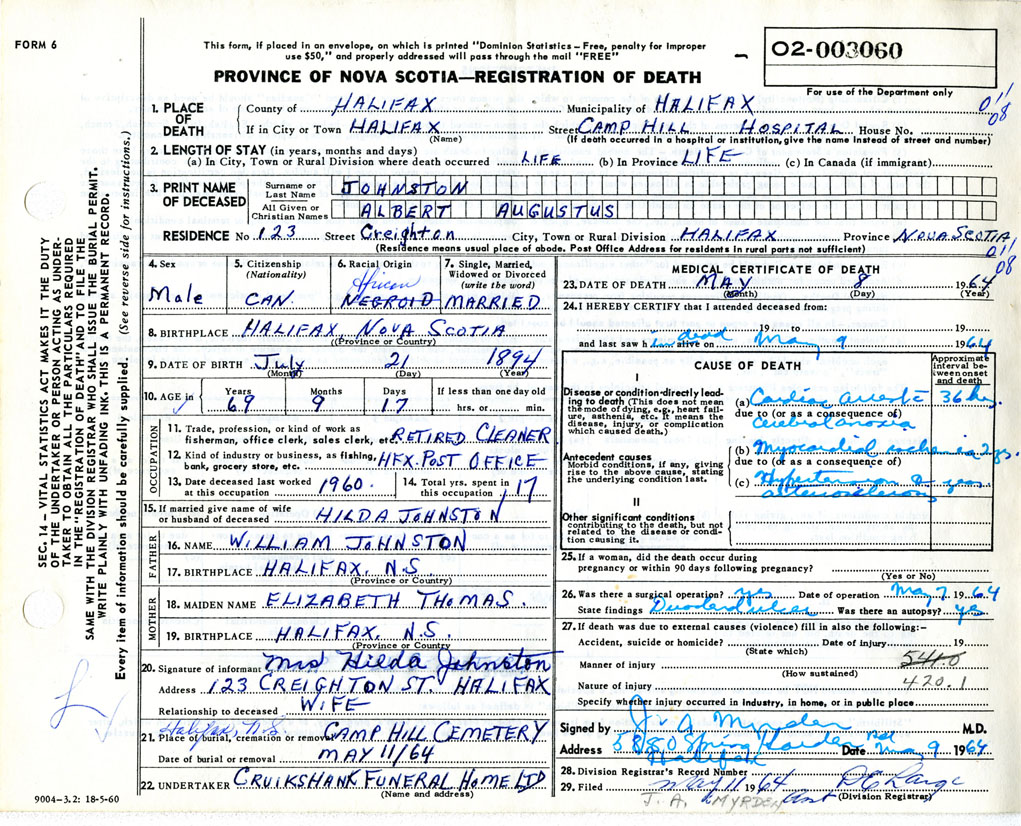 FORM 6
This form, if placed in an envelope, on which is printed "Dominion Statistics - Free, penalty for improper
use $50," and properly addressed will pass through the mail "FREE"
PROVINCE OF NOVA SCOTIA—REGISTRATION OF DEATH
02-003060
For use of the Department only
SEC. 14 – VITAL STATISTICS ACT MAKES IT THE DUTY
OF THE UNDERTAKER OR PERSON ACTING AS UNDER-
TAKER TO OBTAIN ALL THE PARTICULARS REQUIRED
IN THE "REGISTRATION OF DEATH" AND TO FILE THE
SAME WITH THE DIVISION REGISTRAR WHO SHALL ISSUE THE BURIAL PERMIT.
WRITE PLAINLY WITH UNFADING INK. THIS IS A PERMANENT RECORD.
Every item of information should be carefully supplied. (See reverse side for instructions.)
1. PLACE OF DEATH
County of HALIFAX Municipality of HALIFAX
011
08
If in City or Town HALIFAX Street CAMP HILL HOSPITAL House No.
(Name) (If death occurred in a hospital or institution, give the name instead of street and number)
2. LENGTH OF STAY (in years, months and days)
(a) In City, Town or Rural Division where death occurred LIFE (b) In Province LIFE (c) In Canada (if immigrant)
3. PRINT NAME OF DECEASED
Surname or Last Name JOHNSTON
All Given or Christian Names ALBERT AUGUSTUS
RESIDENCE No 123 Street Creighton City, Town or Rural Division HALIFAX Province NOVA SCOTIA
(Residence means usual place of abode. Post Office Address for residents in rural parts not sufficient)
011
08
4. Sex Male
5. Citizenship (Nationality) CAN.
6. Racial Origin African NEGROID
7. Single, Married, Widowed or Divorced (write the word) MARRIED
8. BIRTHPLACE HALIFAX, NOVA SCOTIA
(Province or Country)
9. DATE OF BIRTH July 21 1894
(Month) (Day) (Year)
10. AGE in Years 69 Months 9 Days 17 If less than one day old hrs. or min.
OCCUPATION
11. Trade, profession, or kind of work as fisherman, office clerk, sales clerk, etc. RETIRED CLEANER
12. Kind of industry or business, as fishing, bank, grocery store, etc. HFX. POST OFFICE
13. Date deceased last worked at this occupation 1960.
14. Total yrs. spent in this occupation 17
15. If married give name of wife or husband of deceased HILDA JOHNSTON
FATHER
16. NAME WILLIAM JOHNSTON
17. BIRTHPLACE HALIFAX, N.S.
(Province or Country)
MOTHER
18. MAIDEN NAME ELIZABETH THOMAS.
19. BIRTHPLACE HALIFAX, N.S.
(Province or Country)
20. Signature of informant Mrs Hilda Johnston
Address 123 CREIGHTON ST. HALIFAX
Relationship to deceased WIFE
Halifax, N.S.
21. Place of burial, cremation or removal CAMP HILL CEMETERY
Date of burial or removal MAY 11/64
22. UNDERTAKER CRUIKSHANK FUNERAL HOME LTD
(Name and address)
9004–3.2: 18-5-60
MEDICAL CERTIFICATE OF DEATH
23. DATE OF DEATH MAY 8 1964
(Month) (Day) (Year)
24. I HEREBY CERTIFY that I attended deceased from:
19 to 19
and last saw h im dead alive on May 9 1964
CAUSE OF DEATH
Approximate interval between onset and death
I
Disease or condition directly leading to death (This does not mean the mode of dying, e.g., heart failure, asthenia, etc. It means the disease, injury, or complication which caused death.)
(a) Cardiac arrest 36 hrs.
due to (or as a consequence of)
cerebral anoxia
Antecedent causes
Morbid conditions, if any, giving rise to the above cause, stating the underlying condition last.
(b) Myocardial ischemia 2 yrs.
due to (or as a consequence of)
(c) Hypertension & yrs
arteriosclerosis
II
Other significant conditions
contributing to the death, but not related to the disease or condition causing it.
25. If a woman, did the death occur during
pregnancy or within 90 days following pregnancy?
(Yes or No)
26. Was there a surgical operation? yes Date of operation May 7 1964
State findings Duodenal ulcer Was there an autopsy? yes
27. If death was due to external causes (violence) fill in also the following:–
Accident, suicide or homicide? Date of injury 19
(State which)
Manner of injury 541.0
(How sustained)
Nature of injury 420.1
Specify whether injury occurred in Industry, in home, or in public place
Signed by J. A. Myrden M.D.
Address 5880 Spring Garden Rd Date May 9 1964
Halifax
28. Division Registrar's Record Number
29. Filed May 11 1964
(Division Registrar)
J. A. MYRDEN